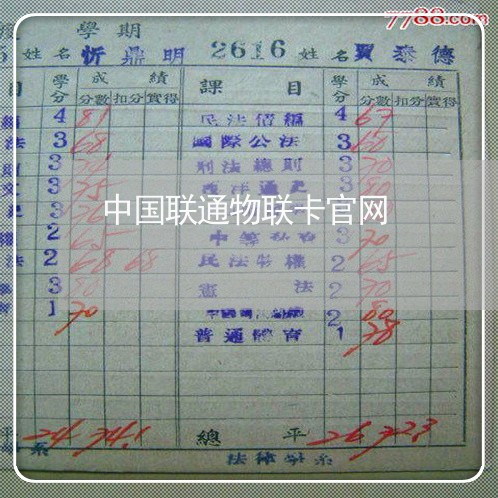 7788.com
學期
姓名 忻鼎明 2616 姓名 賈泰德
目 學分 成績 課目 學分 成績
分數 扣分 實得 分數 扣分 實得
4 81 民法債編 4 67
法 3 68 國際公法 3 60
3 刑法總則 3 70
3 75 西洋通史 3 80
中国联通物联卡官网
2 65 3 70
法 2 68 68 民法物權 2 65
3 80 憲法 2 70
1 70 2 80
普通體育 1 78
平 24 74.1 總平 26 72.3
系 法律學系